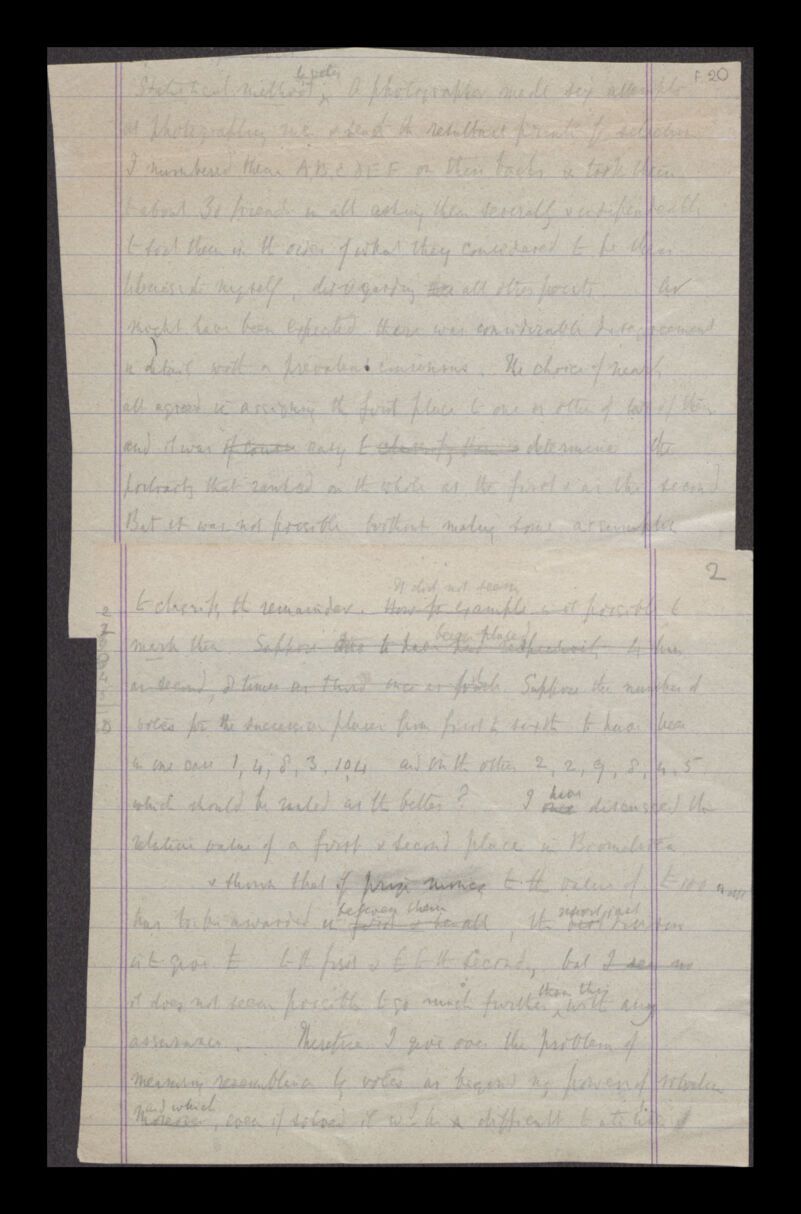 f. 20
by votes
Statistical method, A photographer made six attempts
at photographing me & sent the resultant prints for selection
I numbered them A, B, C D E F on their backs & took them
to about 30 friends in all asking them severally & independently
to sort them in the order of what they considered to be their
likeness to myself, disregarding all other points. As
might have been expected there was considerable disagreement
in detail with a prevalent consensus. The choice of nearly
all agreed in assigning the first place to one or other of two of them
and it was of course easy to classify them determine the
portraits that ranked on the whole as the first & as the second
But it was not possible without making some
2
It did not seem
to classify the remainder. How for example is it possible to
been placed
mark them Suppose to have had respectively
as second, 2 times as third once as fourth. Suppose the number of
votes for the successive places from first to sixth to have been
in one case 1, 4, 8, 3, 10, 4 and in the other 2, 2, 9, 8, 4, 5
which should be ranked as the better? I have once discussed the
relative value of a first & second place in Biometrika
& shown that if prize money to the value of £100
between them
has to be awarded in first & second, the division
is to give £ to the first & £ to the second, but I see no
than this
it does not seem possible to go much further, with any
assurance. Therefore I give over the problem of
measuring resemblance by votes as beyond my powers of solution
and which
Moreover, even if solved it would be difficult to